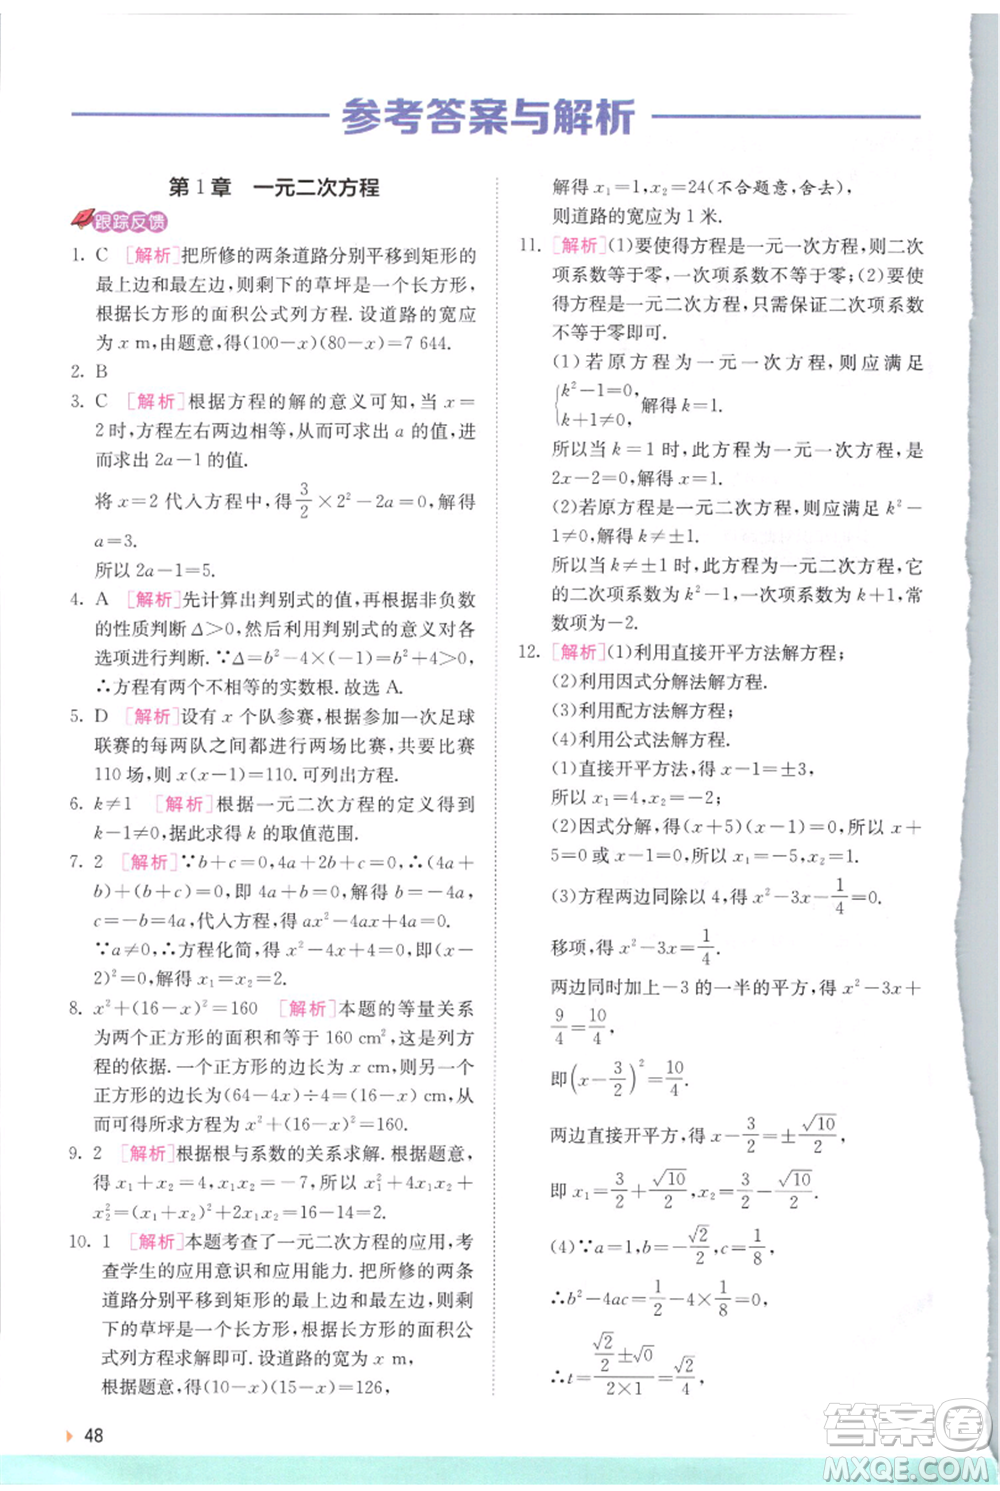 参考答案与解析
第1章 一元二次方程
跟踪反馈
1. C [解析]把所修的两条道路分别平移到矩形的
最上边和最左边,则剩下的草坪是一个长方形,
根据长方形的面积公式列方程.设道路的宽应
为 x m,由题意,得(100-x)(80-x)=7 644.
2. B
3. C [解析]根据方程的解的意义可知,当 x=
2时,方程左右两边相等,从而可求出 a 的值,进
而求出 2a-1 的值.
将 x=2 代入方程中,得 3/2×2²-2a=0,解得
a=3.
所以 2a-1=5.
4. A [解析]先计算出判别式的值,再根据非负数
的性质判断 Δ>0,然后利用判别式的意义对各
选项进行判断.∵Δ=b²-4×(-1)=b²+4>0,
∴方程有两个不相等的实数根.故选 A.
5. D [解析]设有 x 个队参赛,参加一次足球
联赛的每两队之间都进行两场比赛,共要比赛
110 场,则 x(x-1)=110.可列出方程.
6. k≠1 [解析]根据一元二次方程的定义得到
k-1≠0,据此求得 k 的取值范围.
7. 2 [解析]∵b+c=0,4a+2b+c=0,∴(4a+
b)+(b+c)=0,即 4a+b=0,解得 b=-4a,
c=-b=4a,代入方程,得 ax²-4ax+4a=0.
∵a≠0,∴方程化简,得 x²-4x+4=0,即(x-
2)²=0,解得 x₁=x₂=2.
8. x²+(16-x)²=160 [解析]本题的等量关系
为两个正方形的面积和等于 160 cm²,这是列方
程的依据.一个正方形的边长为 x cm,则另一个
正方形的边长为(64-4x)÷4=(16-x)cm,
可得所求方程为 x²+(16-x)²=160.
9. 2 [解析]根据根与系数的关系求解.根据题意,
得 x₁+x₂=4,x₁x₂=-7,所以 x₁²+4x₁x₂+
x₂²=(x₁+x₂)²+2x₁x₂=16-14=2.
10. 1 [解析]本题考查了一元二次方程的应用,考
查学生的应用意识和应用能力.把所修的两条
道路分别平移到矩形的最上边和最左边,则剩
下的草坪是一个长方形,根据长方形的面积公
式列方程求解即可.设道路的宽为 x m,
根据题意,得(10-x)(15-x)=126,
解得 x₁=1,x₂=24(不合题意,舍去),
则道路的宽应为 1 米.
11. [解析](1)要使得方程是一元一次方程,则二次
项系数等于零,一次项系数不等于零;(2)要使
得方程是一元二次方程,只需保证二次项系数
不等于零即可.
(1)若原方程为一元一次方程,则应满足
{k²-1=0,
k+1≠0, 解得 k=1.
所以当 k=1 时,此方程为一元一次方程,为
2x-2=0,解得 x=1.
(2)若原方程为一元二次方程,则应满足 k²-
1≠0,解得 k≠±1.
所以当 k≠±1 时,此方程为一元二次方程,它
的二次项系数为 k²-1,一次项系数为 k+1,常
数项为-2.
12. [解析](1)利用直接开平方法解方程;
(2)利用因式分解法解方程.
(3)利用配方法解方程;
(4)利用公式法解方程.
(1)直接开平方法,得 x-1=±3,
所以 x₁=4,x₂=-2;
(2)因式分解,得(x+5)(x-2)=0,所以 x+
5=0 或 x-2=0,解得 x₁=-5,x₂=2.
(3)方程两边同除以 4,得 x²-3x-1/4=0.
移项,得 x²-3x=1/4.
两边同时加上-3 的一半的平方,得 x²-3x+
9/4=10/4,
即(x-3/2)²=10/4.
两边直接开平方,得 x-3/2=±√10/2,
即 x₁=3/2+√10/2,x₂=3/2-√10/2.
(4)∵a=1,b=-√2/2,c=1/8,
∴b²-4ac=1/2-4×1/8=0,
∴t=(√2/2±√0)/(2×1)=√2/4,
48
答案圈
MXQE.COM